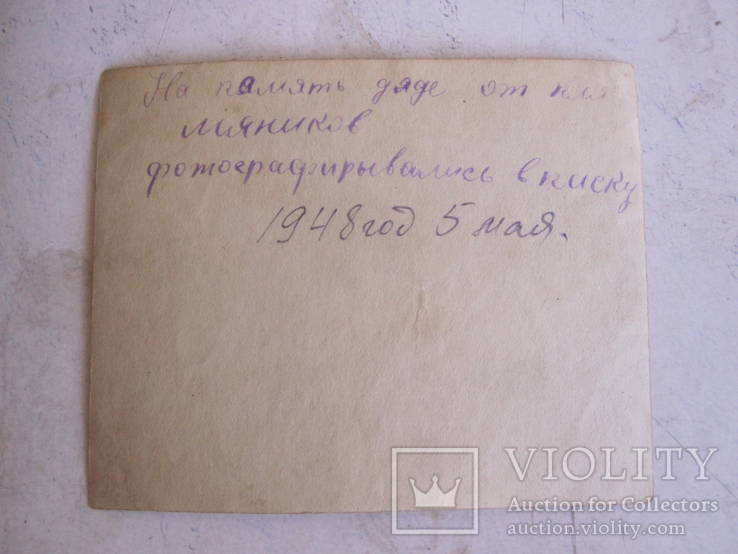 На память дяде от пле
мяников
фотографирывались в писку
1948 год 5 мая.
VIOLITY
Auction for Collectors
auction.violity.com